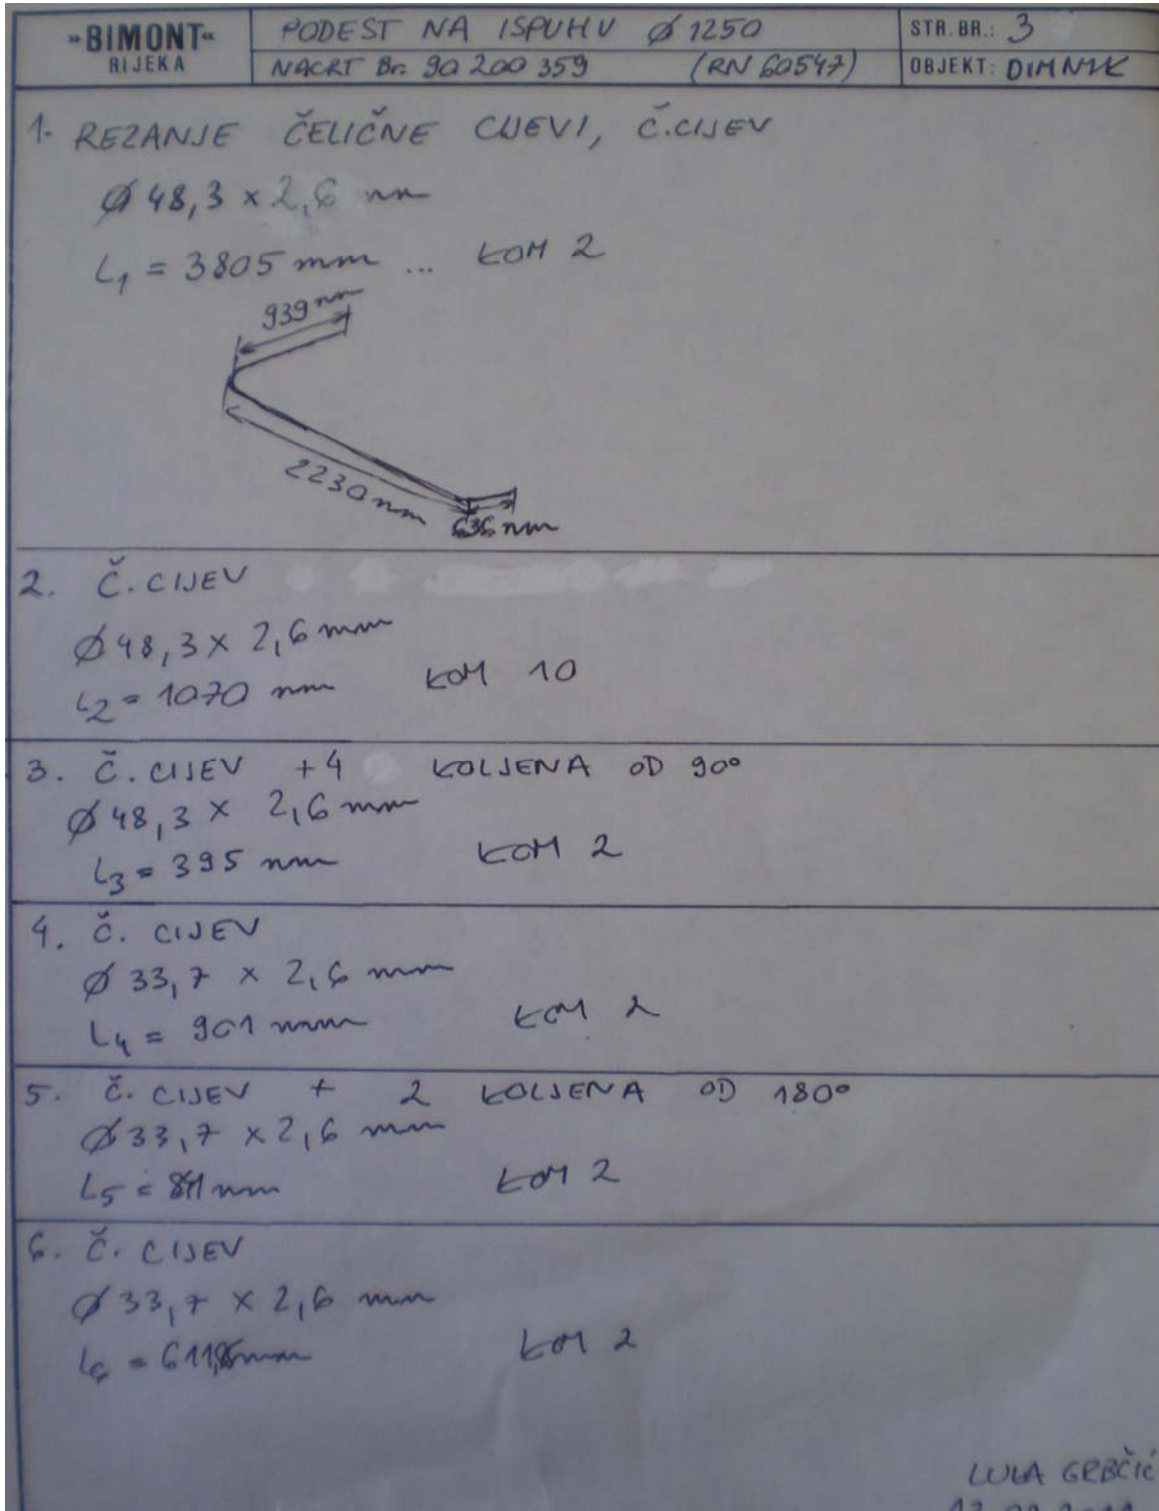 »BIMONT«
RIJEKA
PODEST NA ISPUHU Ø 1250
NACRT Br. 90 200 359 (RN 60547)
STR. BR.: 3
OBJEKT: DIMNIK
1. REZANJE ČELIČNE CIJEVI, Č.CIJEV
Ø 48,3 x 2,6 mm
L1 = 3805 mm ... KOM 2
939 mm
2230 mm
636 mm
2. Č. CIJEV
Ø 48,3 x 2,6 mm
L2 = 1070 mm KOM 10
3. Č. CIJEV +4 KOLJENA OD 90°
Ø 48,3 x 2,6 mm
L3 = 395 mm KOM 2
4. Č. CIJEV
Ø 33,7 x 2,6 mm
L4 = 901 mm KOM 2
5. Č. CIJEV + 2 KOLJENA OD 180°
Ø 33,7 x 2,6 mm
L5 = mm KOM 2
6. Č. CIJEV
Ø 33,7 x 2,6 mm
L6 = mm KOM 2
GRBČIĆ